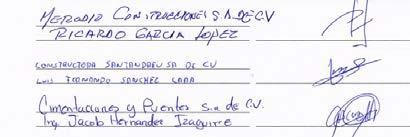 MERODIO CONSTRUCCIONES S.A. DE CV
RICARDO GARCIA LOPEZ
CONSTRUCTORA SANTANDREU SA DE CV
LUIS FERNANDO SANCHEZ LARA
Cimentaciones y Puentes s.a de c.v.
Ing. Jacob Hernandez Izaguirre